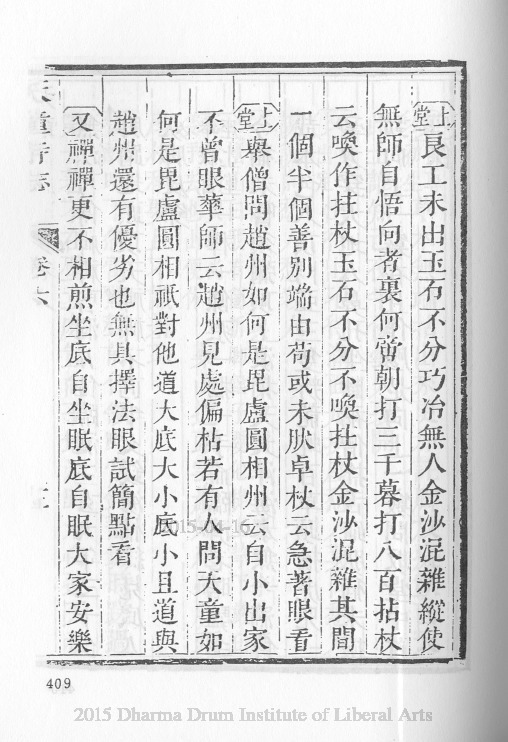 上堂良工未出玉石不分巧冶無人金沙混雜縱使
無師自悟向者裏何啻朝打三千暮打八百拈杖
云喚作拄杖玉石不分不喚拄杖金沙混雜其間
一個半個善別端由苟或未肰卓杖云急著眼看
上堂舉僧問趙州如何是毘盧圓相州云自小出家
不曾眼華師云趙州見處偏枯若有人問天童如
何是毘盧圓相祇對他道大底大小底小且道與
趙州還有優劣也無具擇法眼試簡點看
又禪禪更不相煎坐底自坐眠底自眠大家安樂
天童寺志 卷六
409
2015-04-16
2015 Dharma Drum Institute of Liberal Arts